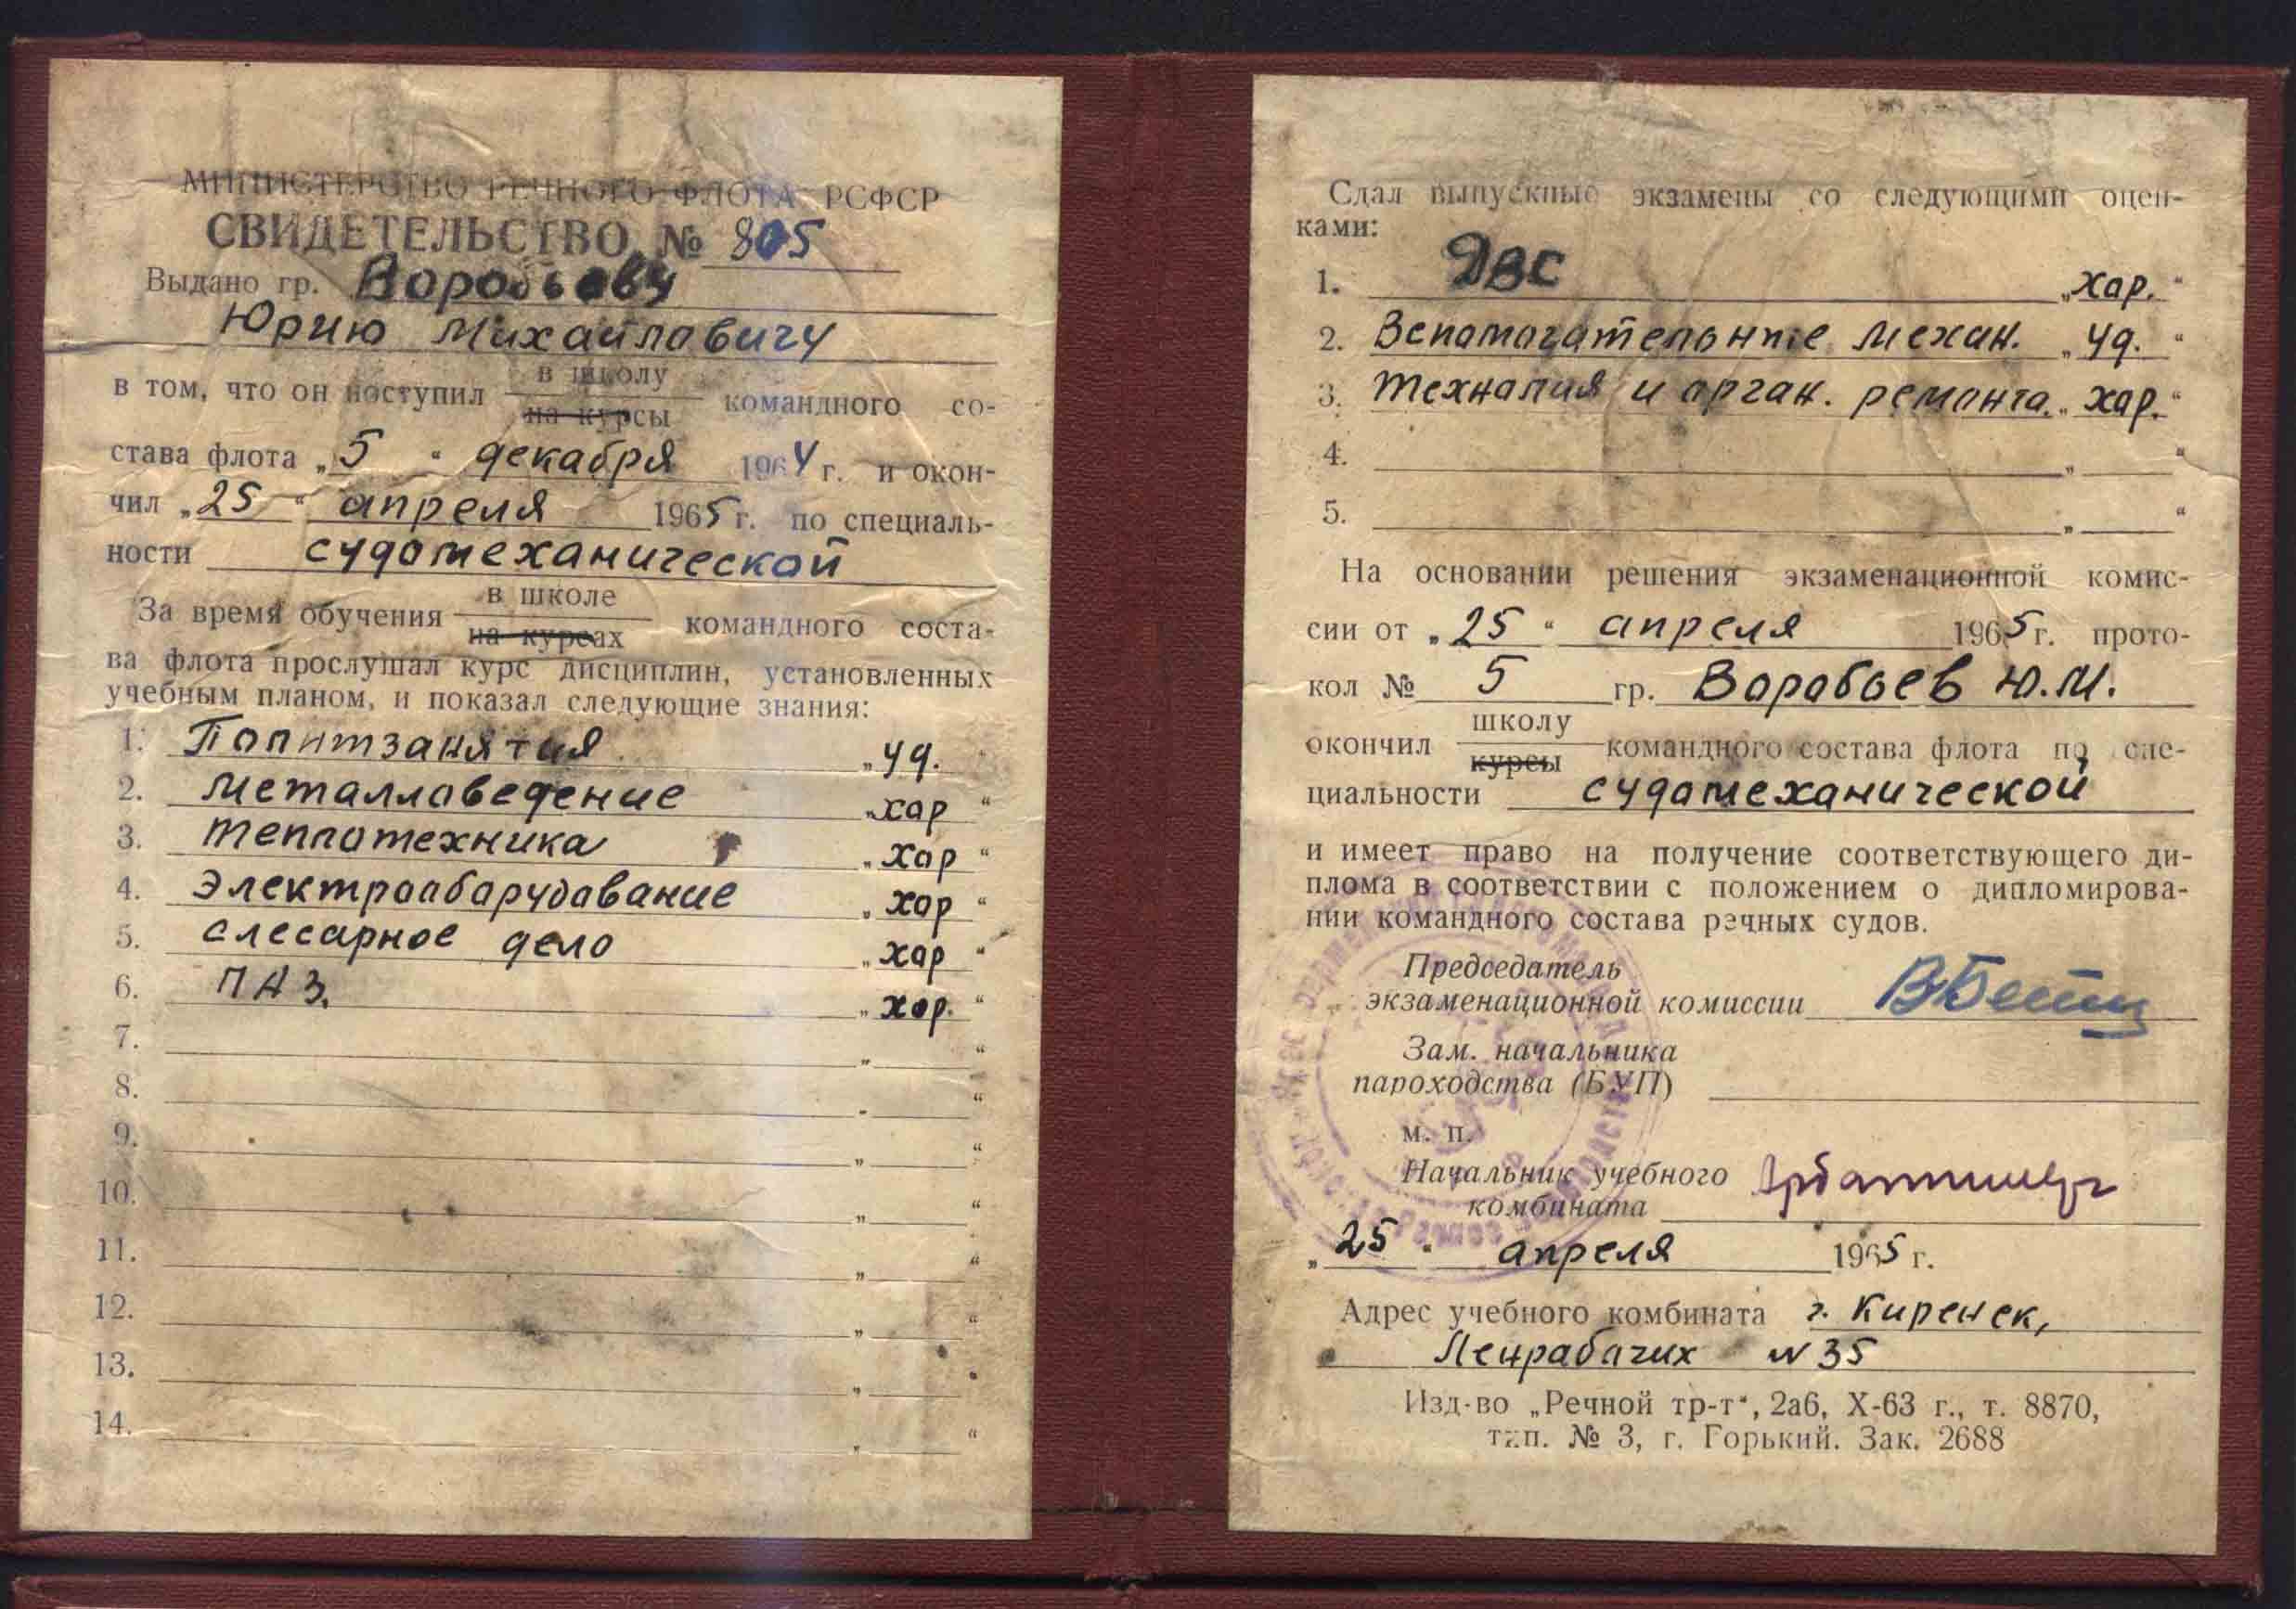 МИНИСТЕРСТВО РЕЧНОГО ФЛОТА РСФСР
СВИДЕТЕЛЬСТВО № 805
Выдано гр. Воробьеву
Юрию Михайловичу
в том, что он поступил в школу на курсы командного со-
става флота „5“ декабря 1964 г. и окон-
чил „25“ апреля 1965 г. по специаль-
ности судомеханической
За время обучения в школе на курсах командного соста-
ва флота прослушал курс дисциплин, установленных
учебным планом, и показал следующие знания:
1. Политзанятия „уд.“
2. Металловедение „хор“
3. Теплотехника „хор“
4. Электрооборудование „хор“
5. Слесарное дело „хор“
6. ПАЗ. „хор.“
7. „ “
8. „ “
9. „ “
10. „ “
11. „ “
12. „ “
13. „ “
14. „ “
Сдал выпускные экзамены со следующими оцен-
ками:
1. ДВС „хор.“
2. Вспомогательные механ. „уд.“
3. Технолия и орган. ремонта. „хор.“
4. „ “
5. „ “
На основании решения экзаменационной комис-
сии от „25“ апреля 1965 г. прото-
кол № 5 гр. Воробьев Ю.М.
окончил школу курсы командного состава флота по спе-
циальности судомеханической
и имеет право на получение соответствующего ди-
плома в соответствии с положением о дипломирова-
нии командного состава речных судов.
Председатель
экзаменационной комиссии
Зам. начальника
пароходства (БУП)
м. п.
Начальник учебного
комбината
„25“ апреля 1965 г.
Адрес учебного комбината г. Киренск,
Ленрабочих № 35
Изд-во „Речной тр-т“, 2а6, X-63 г., т. 8870,
тип. № 3, г. Горький. Зак. 2688